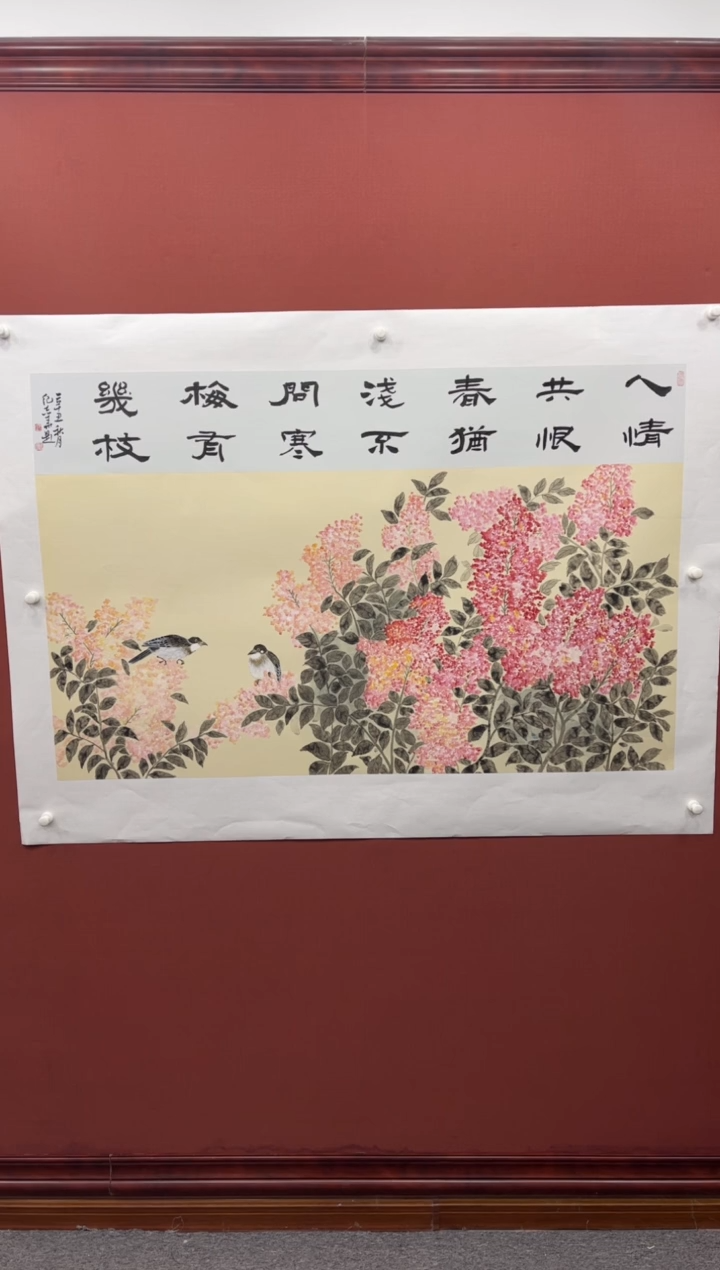 人情
共恨
春猶
淺不
問寒
梅有
幾枝
辛丑秋月
題